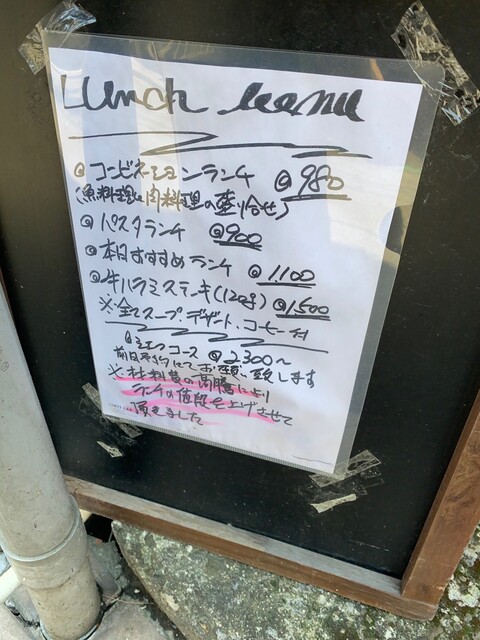 Lunch Menu
◎ コンビネーションランチ @980
(魚料理と肉料理の盛り合せ)
◎ パスタランチ @900
◎ 本日すすめランチ @1,100
◎ 牛ハラミステーキ(120g) @1,500
※全てスープ、デザート、コーヒー付
コース @2,300〜
前日予約にてお願い致します
※材料費の高騰により
ランチの値段を上げさせて
頂きました